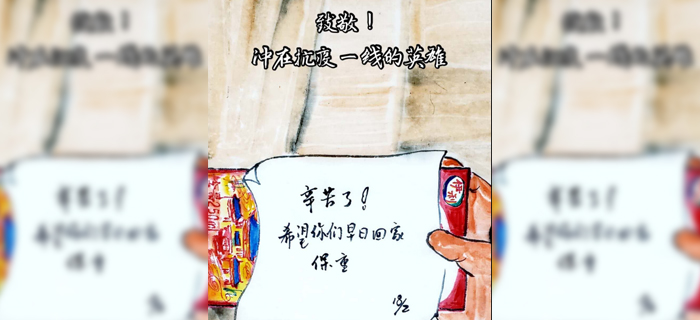 致敬！
冲在抗疫一线的英雄
辛苦了！
希望你们早日回家
保重